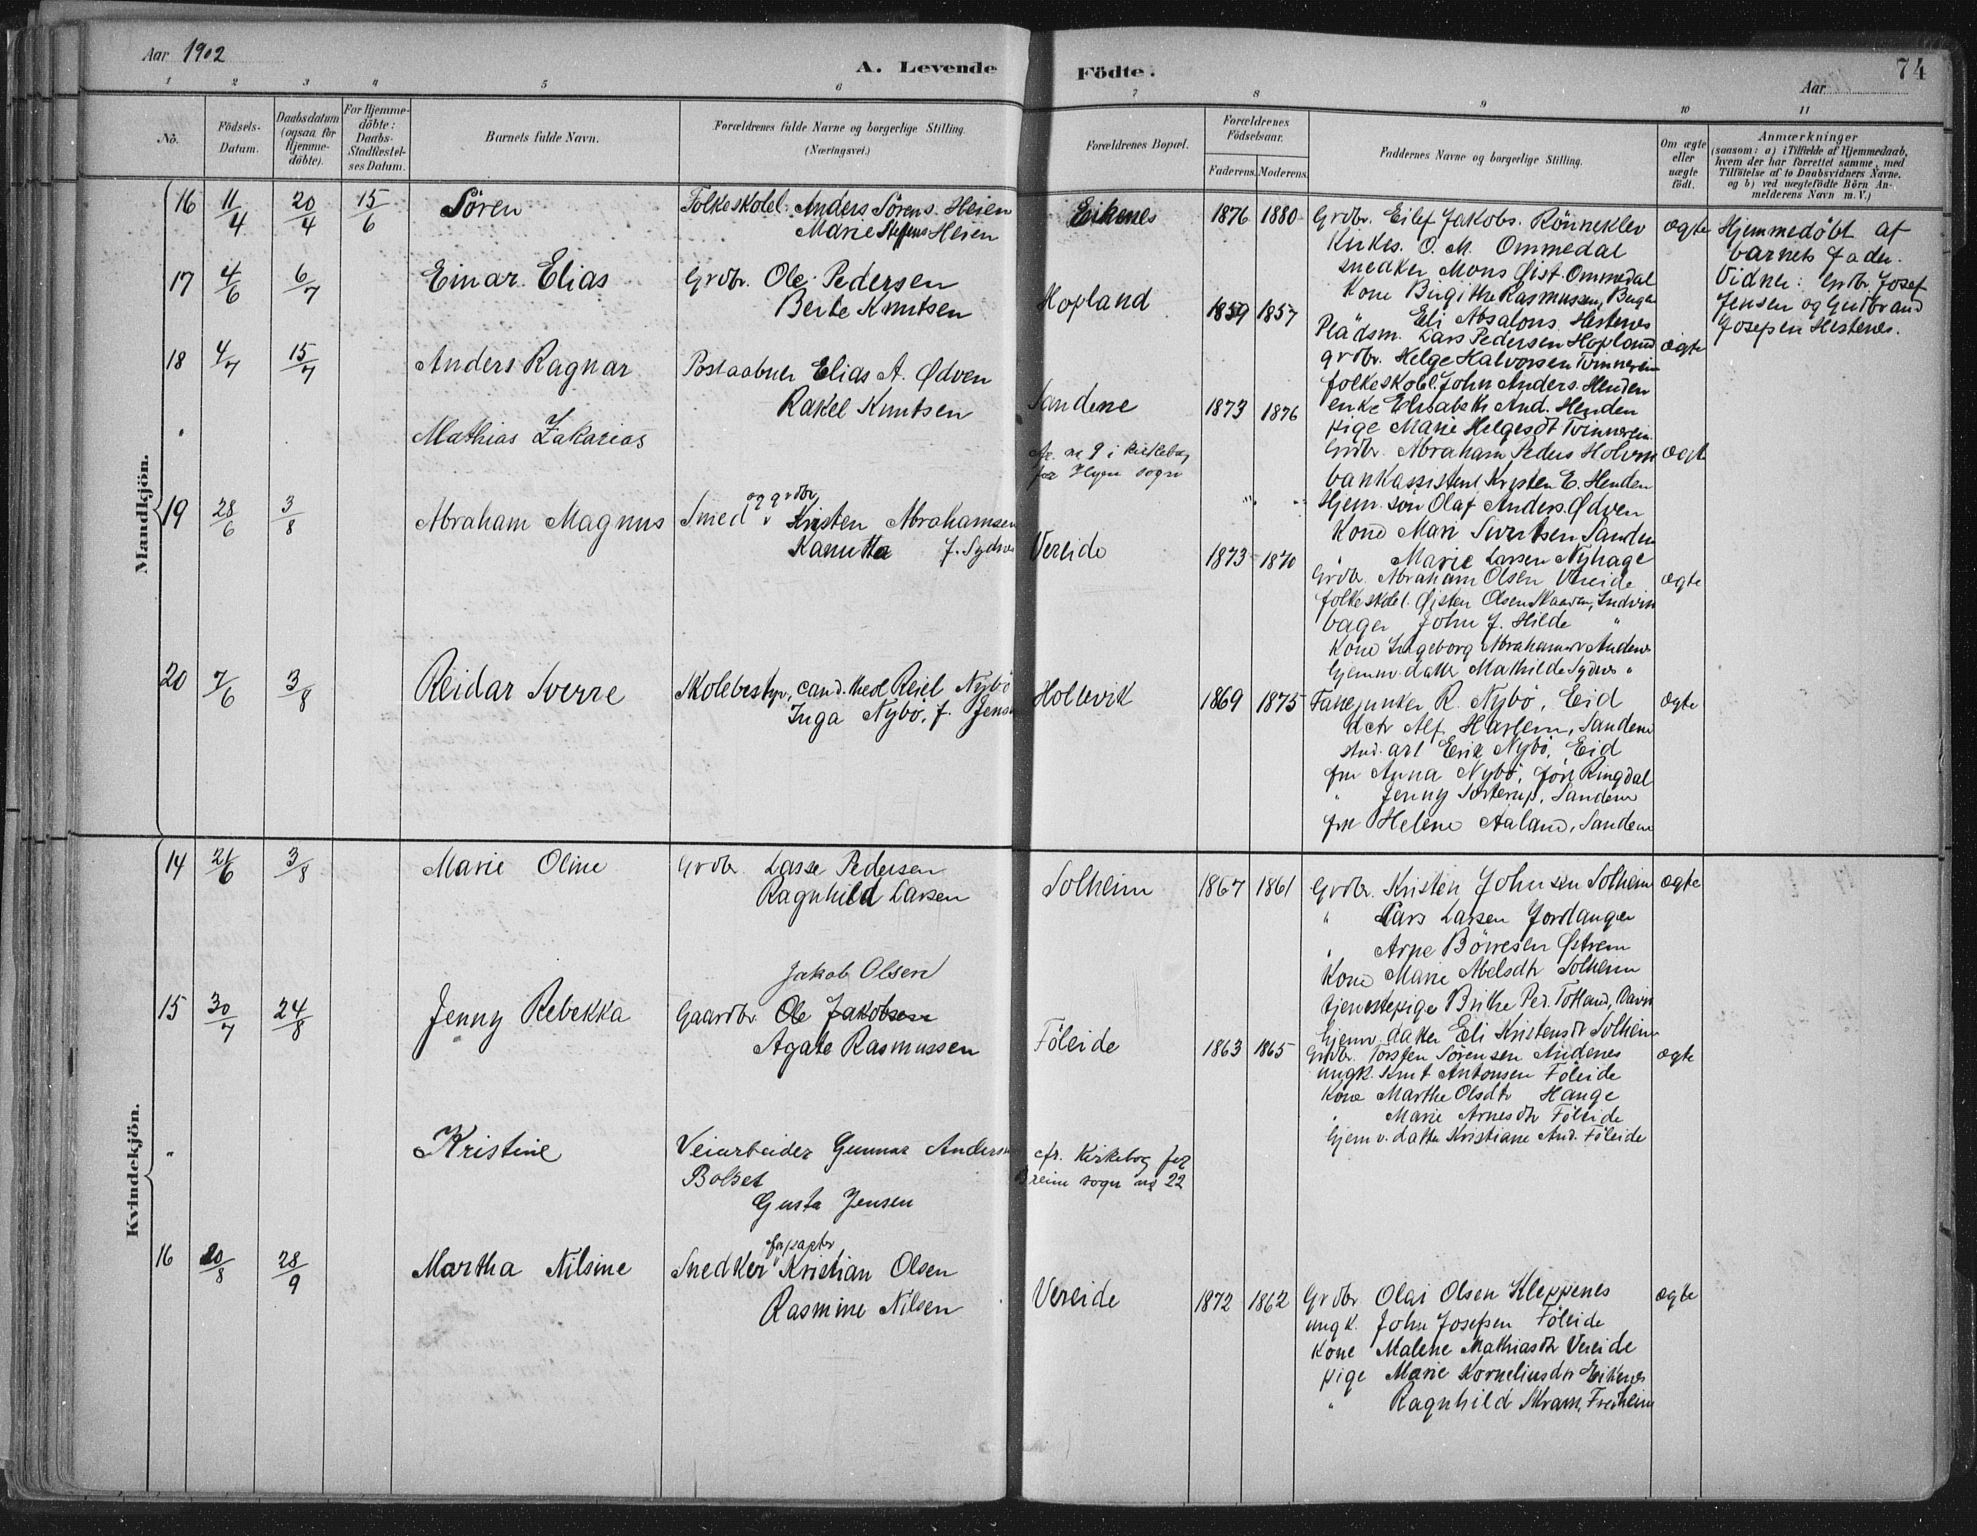 Aar 1902
A. Levende
Födte.
Aar
74
1 2 3 4 5 6 7 8 9 10 11
No.
Födsels-Datum.
Daabsdatum (ogsaa för Hjemmedöbte).
For Hjemmedöbte: Daabs-Stadfæstelses Datum.
Barnets fulde Navn.
Forældrenes fulde Navne og borgerlige Stilling.
(Næringsvei.)
Forældrenes Bopæl.
Forældrenes Födselsaar.
Faderens. Moderens.
Faddernes Navne og borgerlige Stilling.
Om ægte eller uægte födt.
Anmærkninger
(saasom: a) i Tilfælde af Hjemmedaab, hvem der har forrettet samme, med Tilföielse af to Daabsvidners Navne. og b) ved uægtefödte Börn Anmelderens Navn m. V.)
Mandkjön.
16 11/4 20/4 15/6 Sören
Folkeskolel. Anders Sörens. Heien
Marie Steffens Heien
Eikenes 1876 1880
Grdbr. Eilef Jakobs. Rönneklev
Kirkes. O. M. Ommedal
snedker Mons Øist. Ommedal
Kone Birgithe Rasmussen,
Eli Absalons. Hestenes
ægte
Hjemmedöbt af
barnets Fader.
Vidner: Grdbr. Josef
Jensen og Gudbrand
Josefsen Hestenes.
17 4/6 6/7 Einar Elias
Grdbr. Ole Pedersen
Berte Knutsen
Hopland 1859 1857
Plådsm. Lars Pedersen Hopland
grdbr. Helge Halvorsen Tvinnerein
folkeskolel. John Anders. Henden
enke Elisabeth And. Henden
pige Marie Helgesdt Tvinnerein
ægte
18 4/7 15/7 Anders Ragnar
Postaabner Elias A. Ødven
Rakel Knutsen
Sandene 1873 1876
Grdbr. Abraham Peders Holvik
bankassistent Kristen E. Henden
Hjem. sön Olaf Anders. Ødven
Kone Mari Sivertsen Sanden
" Marie Larsen Nyhage
ægte
" Mathias Zakarias
no 9 i kirkebog
for Hyen sogn
19 28/6 3/8 Abraham Magnus
Smed og grdbr. Kristen Abrahamsen
Kanutta f. Sydnes
Vereide 1873 1870
Grdbr. Abraham Olsen Vereide
folkeskolel. Øisten Olsen Skaaden, Indvik
bager John J. Hilde "
Kone Ingeborg Andenes
Hjemv. datter Mathilde Sydnes "
ægte
20 7/6 3/8 Reidar Sverre
Skolebestyr., cand. theol Reiel Nybö
Inga Nybö, f. Jensen
Holtevik 1869 1875
Fanejunker R. Nybö, Eid
Alf Harlem, Sandene
stud. art Erik Nybö, Eid
fru Anna Nybö, Ringdal
" Jenny Sandene
frk Helene Aaland, Sandene
ægte
Kvindekjön.
14 21/6 3/8 Marie Oline
Grdbr. Lasse Pedersen
Ragnhild Larsen
Solheim 1867 1861
Grdbr. Kristen Johnsen Solheim
" Lars Larsen Jordanger
" Arne Börresen Østrem
Kone Marie Abelsdtr Solheim
tjenestepige Brithe Ped. Totland, Davik
Hjemv. datter Eli Kristensdtr Solheim
ægte
15 30/7 24/8 Jenny Rebekka
Jakob Olsen
Gaardbr. Ole Jakobsen
Agate Rasmussen
Föleide 1863 1865
Grdbr. Torsten Sørensen Andenes
ungk. Knut Antonsen Föleide
Kone Marthe Olsdtr Hauge
" Marie Arnesdtr Föleide
Hjemv. datter Kristiane And. Föleide
ægte
" Kristine
Veiarbeider Gunnar Anderssen
Bolset
Gusta Jensen
cfr. Kirkebog for
Breim sogn no 22
16 20/8 28/9 Martha Nilsine
Snedker forpagter Kristian Olsen
Rasmine Nilsen
Vereide 1872 1862
Grdbr. Olai Olsen Kleppenes
ungk. John Josefsen Föleide
Kone Malene Mathiasdtr Vereide
pige Marie Korneliusdtr Eikenes
" Ragnhild Skram, Fredheim
ægte